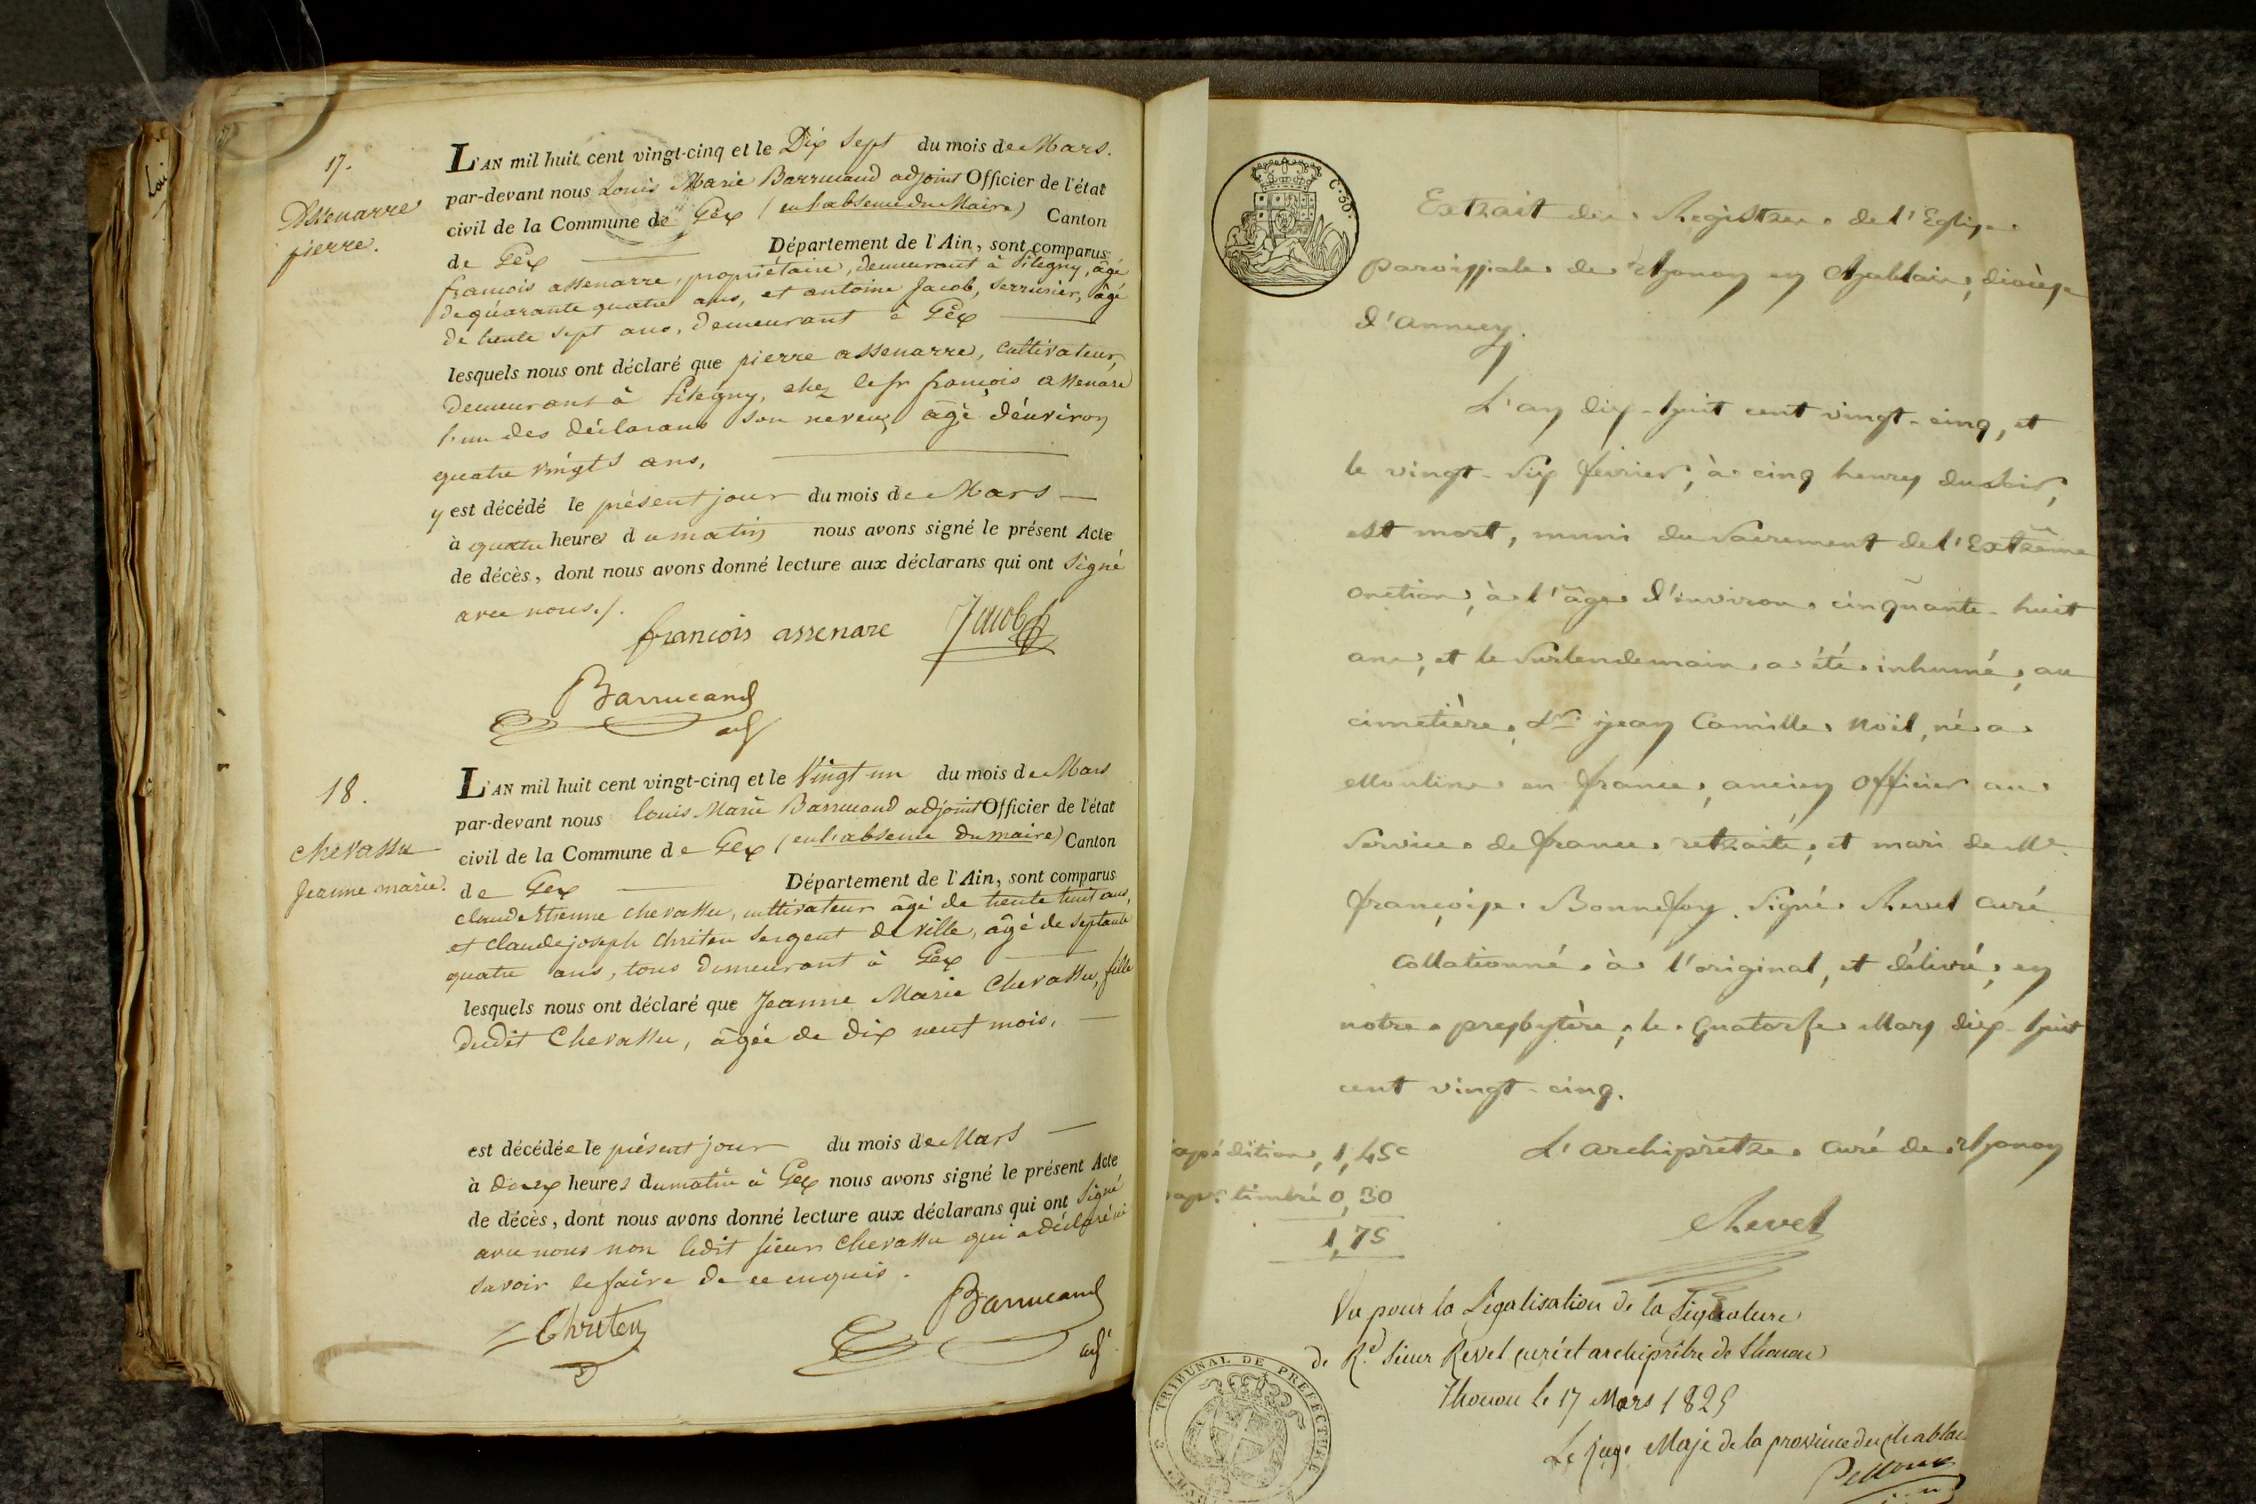 17.
Assenarre
pierre.
L'AN mil huit cent vingt-cinq et le Dix sept du mois de Mars.
par-devant nous Louis Marie Barrucand adjoint Officier de l'état
civil de la Commune de Gex (en l'absence du Maire) Canton
de Gex Département de l'Ain, sont comparus
françois assenarre, propriétaire, demeurant à Pitegny, âgé
de quarante quatre ans, et antoine Jacob, serrurier, âgé
de trente sept ans, demeurant à Gex
lesquels nous ont déclaré que pierre assenarre, cultivateur,
demeurant à Pitegny, chez le sr françois assenare
l'un des déclarans son neveu, âgé d'environ
quatre vingts ans,
y est décédé le présent jour du mois de Mars
à quatre heures du matin nous avons signé le présent Acte
de décès, dont nous avons donné lecture aux déclarans qui ont signé
avec nous./.
françois assenare Jacob
Barrucand
adj
18.
chevassu
Jeanne marie.
L'AN mil huit cent vingt-cinq et le Vingt un du mois de Mars
par-devant nous louis Marie Barrucand adjoint Officier de l'état
civil de la Commune de Gex (en l'absence du maire) Canton
de Gex Département de l'Ain, sont comparus
claude Etienne chevassu, cultivateur âgé de trente huit ans,
et claude joseph chriten sergent de ville, âgé de septante
quatre ans, tous demeurant à Gex
lesquels nous ont déclaré que Jeanne Marie Chevassu, fille
dudit Chevassu, âgée de dix neuf mois.
est décédée le présent jour du mois de Mars
à deux heures du matin à Gex nous avons signé le présent Acte
de décès, dont nous avons donné lecture aux déclarans qui ont signé
avec nous non ledit sieur Chevassu qui a déclaré ne
savoir le faire de ce enquis.
Chriten
Barrucand
adj.
C. 30.
Extrait du Registre de l'Eglise
paroissiale de Thonon en Chablais, diocèse
d'annecy.
L'an dix-huit cent vingt-cinq, et
le vingt-six février, à cinq heures du soir,
est mort, muni du sacrement de l'Extrême
onction, à l'âge d'environ cinquante-huit
ans, et le surlendemain a été inhumé, au
cimetière, Sr jean Camille Noël, né a
Moulins en france, ancien officier au
service de france retraité, et mari de Me
françoise Bonnefoy. Signé Revel curé
Collationné à l'original, et délivré, en
notre presbytère, le quatorse Mars dix-huit
cent vingt-cinq.
expédition, 1,45c
papr timbré 0,30
1,75
L'archiprêtre curé de Thonon
Revel
Vu pour la Légalisation de la signature
de Rd sieur Revel curé et archiprêtre de Thonon
Thonon le 17 Mars 1825
Le juge Maje de la province du chablais
Pelloux
TRIBUNAL DE PREFECTURE